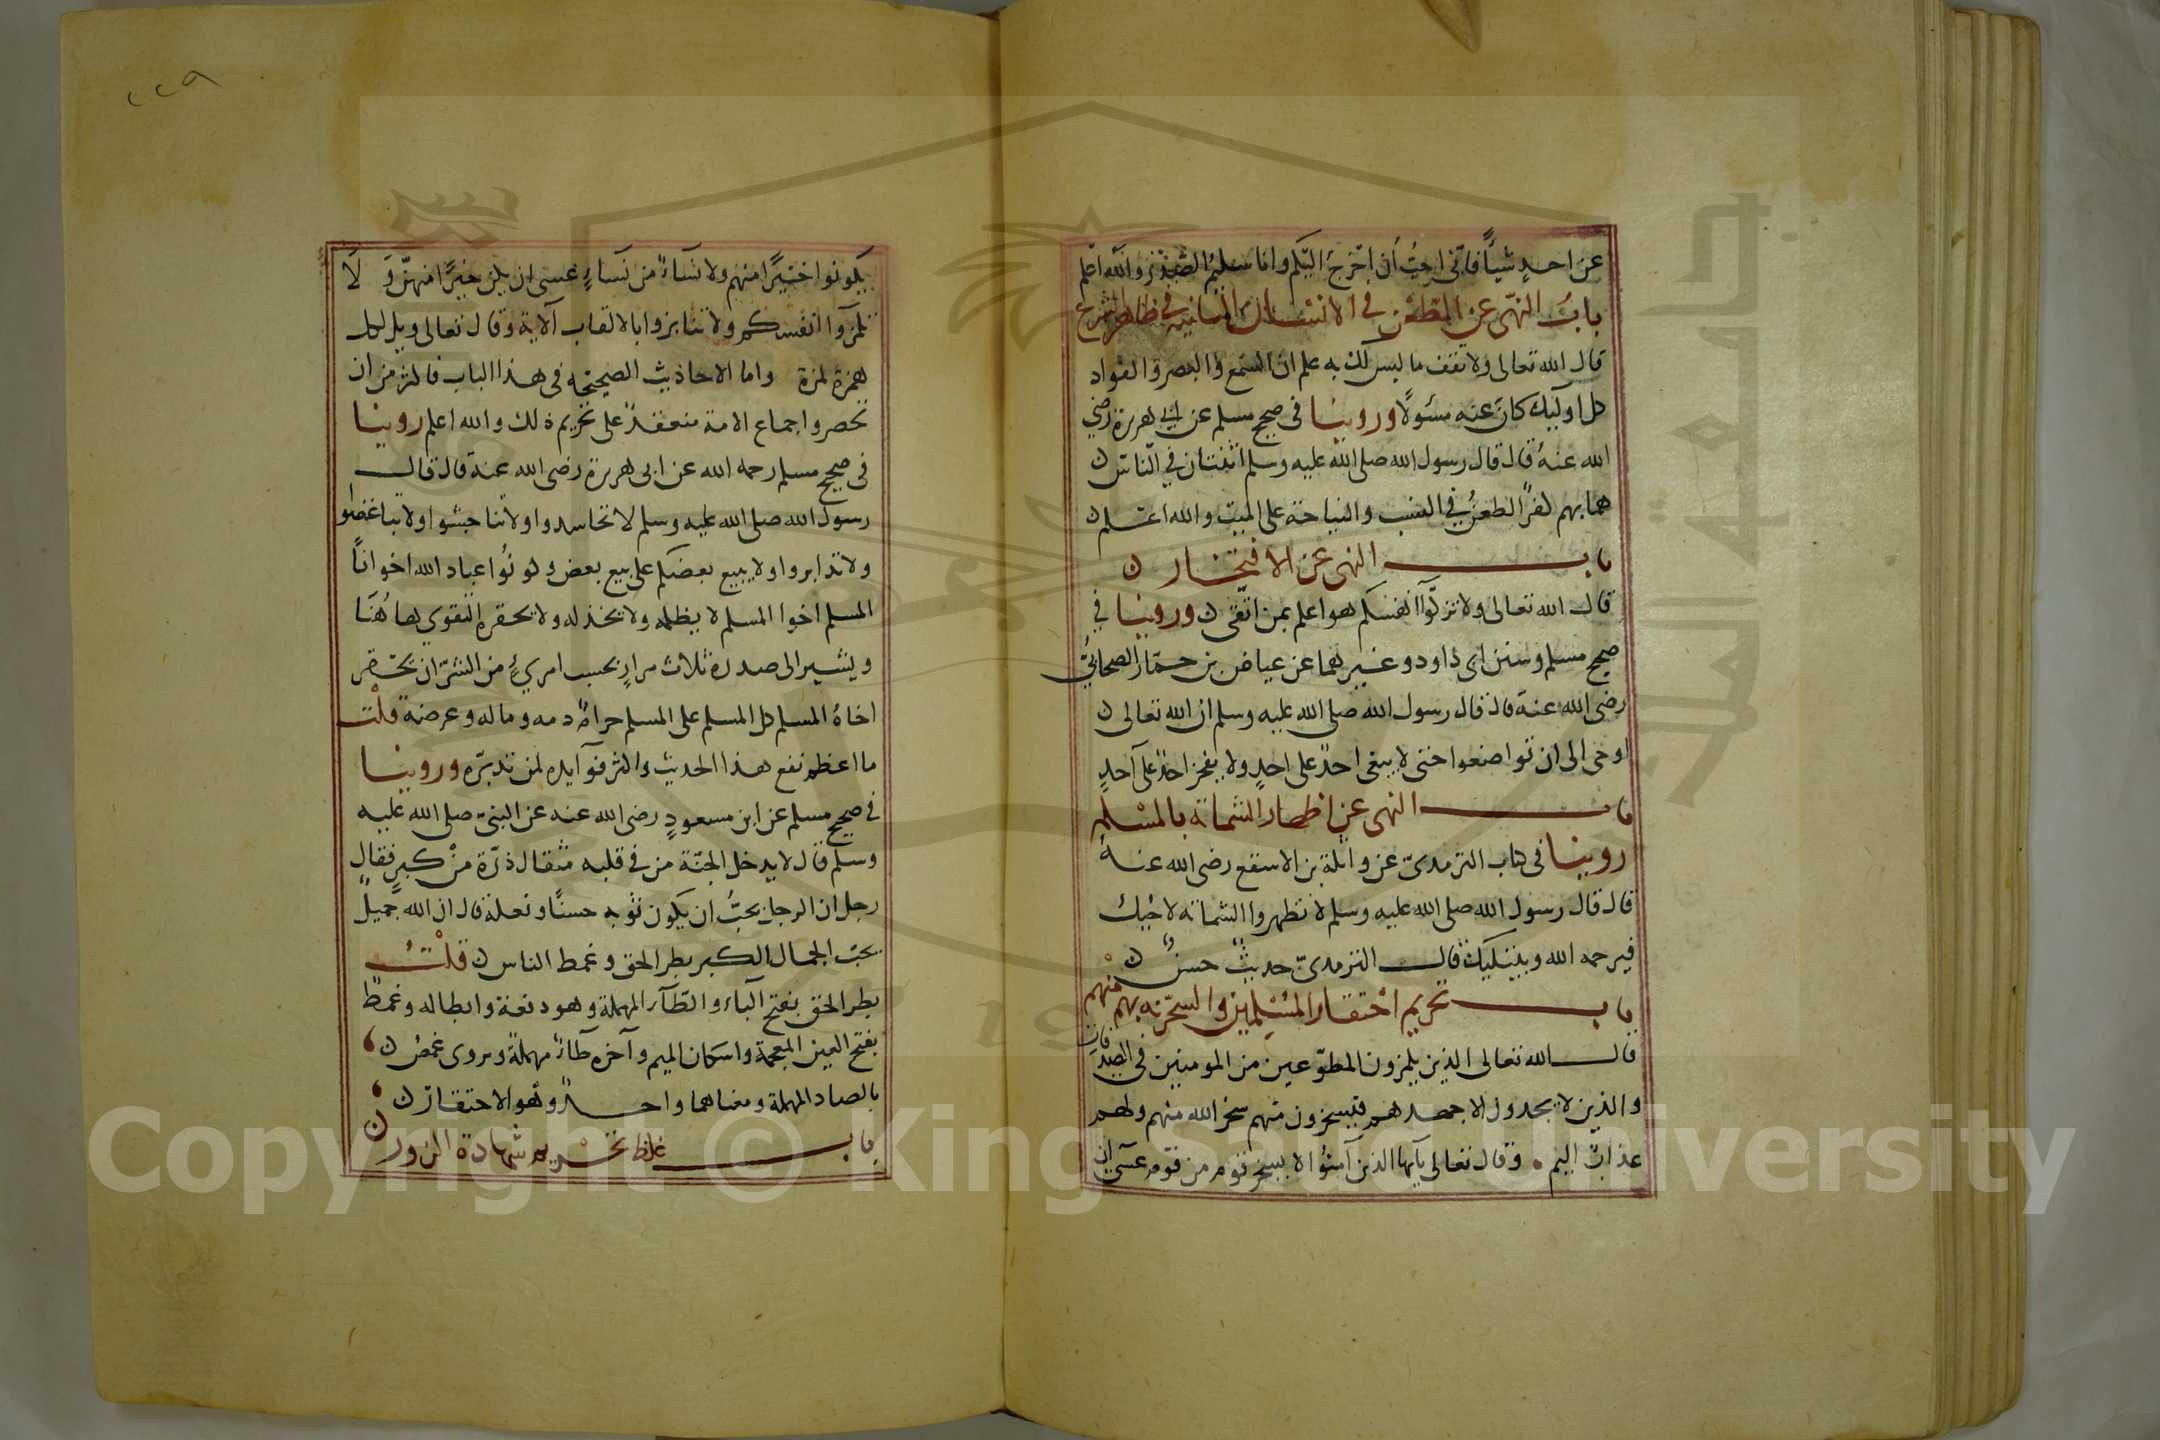 عن احدٍ شيأً فانّي احبُّ أن اخرج اليكم وانا سليمُ الصَّدْرِ والله اعلم
بابُ النهى عن الطّعْن في الانساب الثابتة في ظاهر الشرع
قال الله تعالى ولا تقف ما ليس لك به علم ان السّمع والبصر والفواد
كل اوليك كان عنه مسئولًا وروينا في صحيح مسلم عن ابي هريرة رضي
الله عنهُ قال قال رسول الله صلى الله عليه وسلم اثنتان في النّاس
هما بهم كفرٌ الطعنُ في النسب والنياحة على الميت والله اعلم
باب النهى عن الافتخار
قال الله تعالى ولا تزكّوا انفسكم هو اعلم بمن اتّقى وروينا في
صحيح مسلم وسنن ابى داود وغيرهما عن عياض بن حمار الصحابيّ
رضى الله عنه قال قال رسول الله صلى الله عليه وسلم ان الله تعالى
اوحى الى ان تواضعوا حتى لا يبغى احدٌ على احدٍ ولا يفخر احدٌ على آحدٍ
باب النهى عن اظهار الشماتة بالمسْلم
روينا فى كتاب الترمذىّ عن واثلة بن الاسقع رضى الله عنهُ
قال قال رسول الله صلى الله عليه وسلم لا تظهر الشماتة لاخيك
فيرحمه الله ويبتليك قال الترمذىّ حديثٌ حسنٌ
باب تحريم احْتقار المُسْلمين والسخرية بهم منْهم
قال الله تعالى الذين يلمزون المطوّعين من المومنين فى الصدقات
والذين لا يجدون الا جهدهم فيسخرون منهم سخر الله منهم ولهم
عذابٌ اليم وقال تعالى يآيها الذين آمنوُا لا يسخر قوم من قوم عسى ان
٢٢٩
يكونوا خيرًا منهم ولا نسآءٌ من نسآءٍ عسى ان يكن خيرًا منهنّ وَ لَا
تلمزوا انفسكم ولا تنابزوا بالالقاب آلاية وقال تعالى ويل لكل
همزة لمزة واما الاحاديث الصحيحة فى هذا الباب فاكثر من ان
تحصر واجماع الامة منعقدٌ على تحريم ذلك والله اعلم روينا
فى صحيح مسلم رحمه الله عن ابى هريرة رضى الله عنه قال قال
رسول الله صلى الله عليه وسلم لا تحاسدوا ولا تناجشوا ولا تباغضوا
ولا تدابروا ولا يبيع بعضكم على بيع بعض وكونُوا عباد الله اخوانًا
المسلم اخوا المسلم لا يظلمه ولا يخذله ولا يحقره التقوى هاهُنَا
ويشير الى صدره ثلاث مرارٍ بحسب امرئٍ من الشرّ ان يحتقر
اخاهُ المسلم كل المسلم على المسلم حرامٌ دمه وماله وعرضه قلْت
ما اعظم نفع هذا الحديث واكثر فوآيده لمن تدبّره وروينا
فى صحيح مسلم عن ابن مسعودٍ رضى الله عنه عن النبىّ صلى الله عليه
وسلم قال لا يدخل الجنّة من فى قلبه مثقال ذرّة منْ كبرٍ فقال
رجل ان الرجل يحبُّ ان يكون ثوْبه حسنًا ونعله قال ان الله جميلٌ
يحبّ الجمال الكبر بطر الحق وغمط الناس قلْتُ
بطر الحق بفتح البآء والطّآء المهملة وهو دفعه وابطاله وغمطٌ
بفتح الغين المعجمة واسكان الميم وآخره طآءٌ مهملةٌ ويروى غمصٌ
بالصاد المهملة ومعناهما واحدٌ وهو الاحتقارُ
باب غلظ تحريم شهادة الزور
Copyright © King Saud University